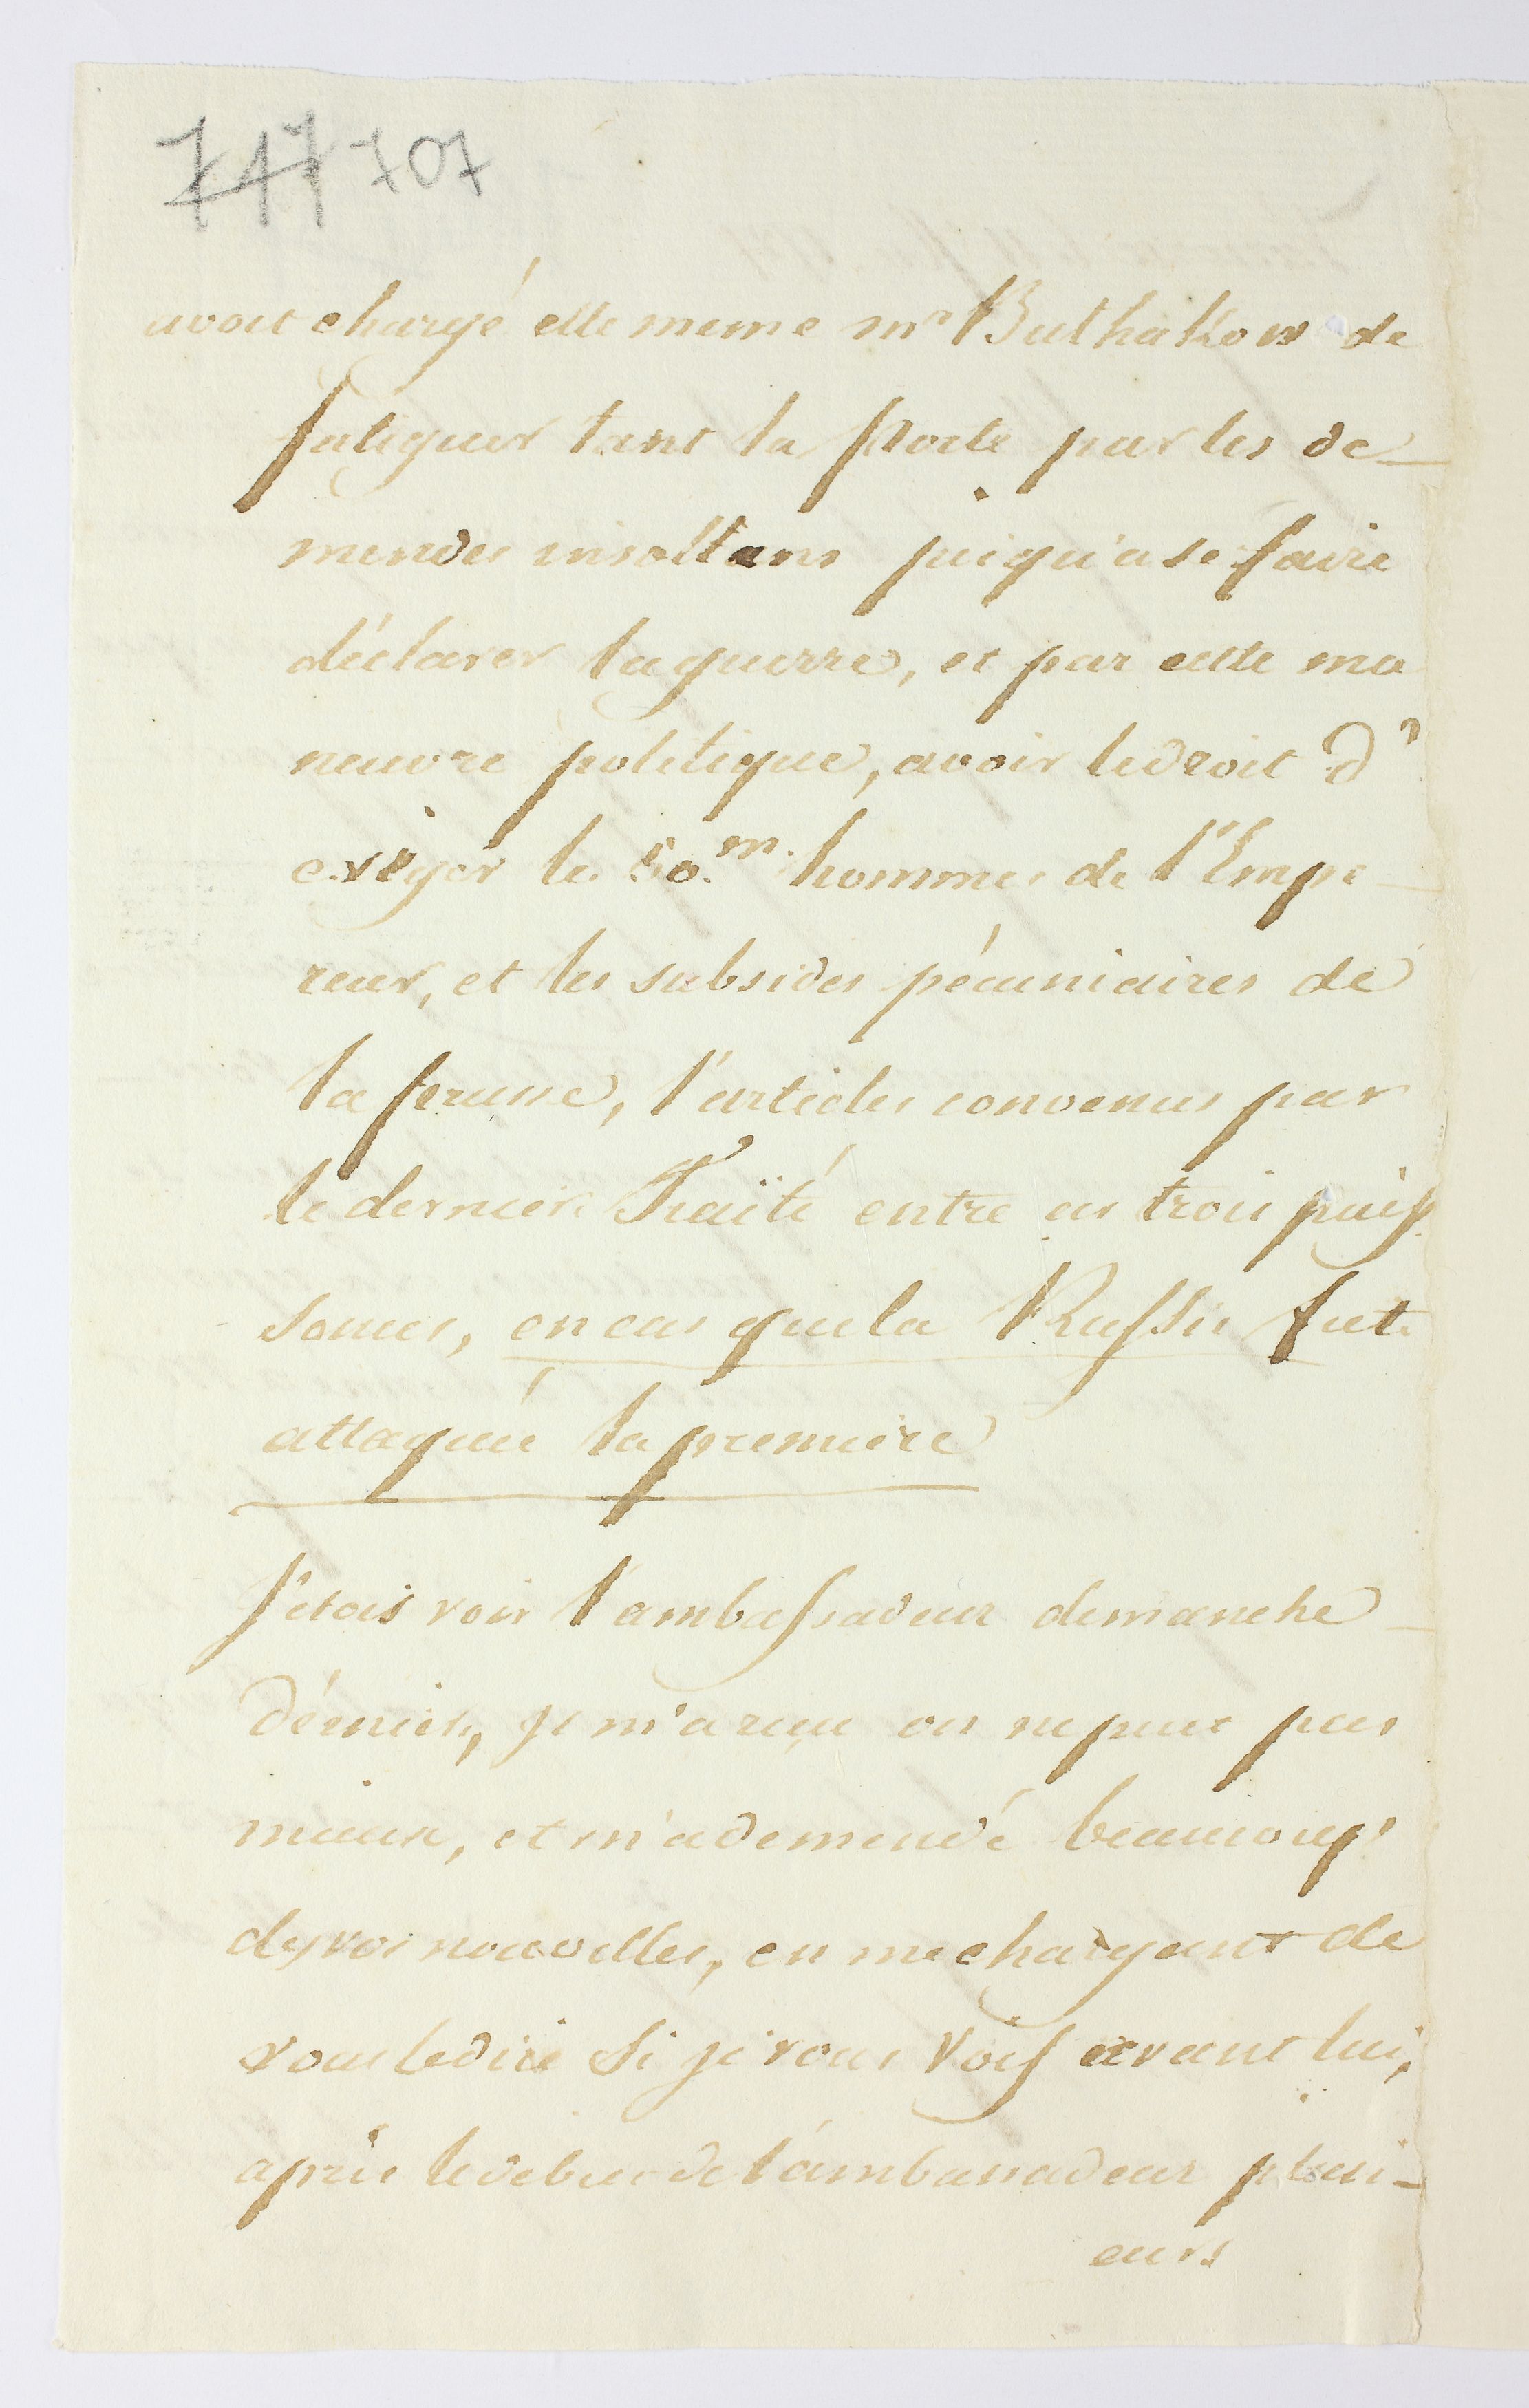 747 707
avoit chargé elle meme mr Buthakow de
fatiguer tant la Porte par les de-
mendes insoltans jusqu'a se faire
déclarer la guerre, et par cette ma
neuvre politique, avoir le droit d'
exiger les 50.m hommes de l'Empe-
reur, et les subsides pécuniaires de
la frensse, l'articles convenus par
le dernier Traïté entre ces trois puis
sances, en cas que la Russie fut
attaquée la premiere
J'etois voir l'ambassadeur demanche
dérnier, je m'a reçu on ne peut pas
mieux, et m'a demendé beaucoup
des vos nouvelles, en me chargeant de
vous le dire si je vous vois avant lui,
aprés le debut de l'ambassadeur plusi-
eurs